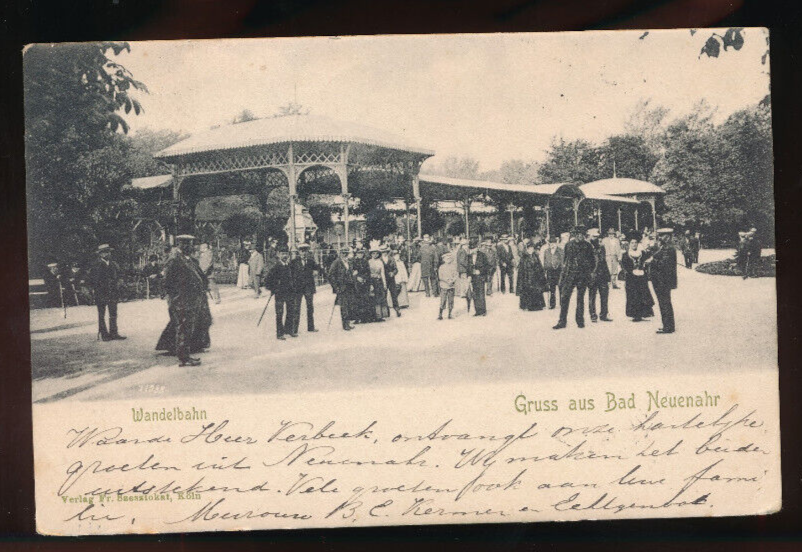 Wandelbahn
Gruss aus Bad Neuenahr
Waarde Heer Verbeek, ontvangt onze hartelijke
groeten uit Neuenahr. Wij maken het beiden
uitstekend. Vele groeten ook aan Uwe fami
Verlag Fr. Köln
lie, Mevrouw B. C. Kermer en Echtgenoot.